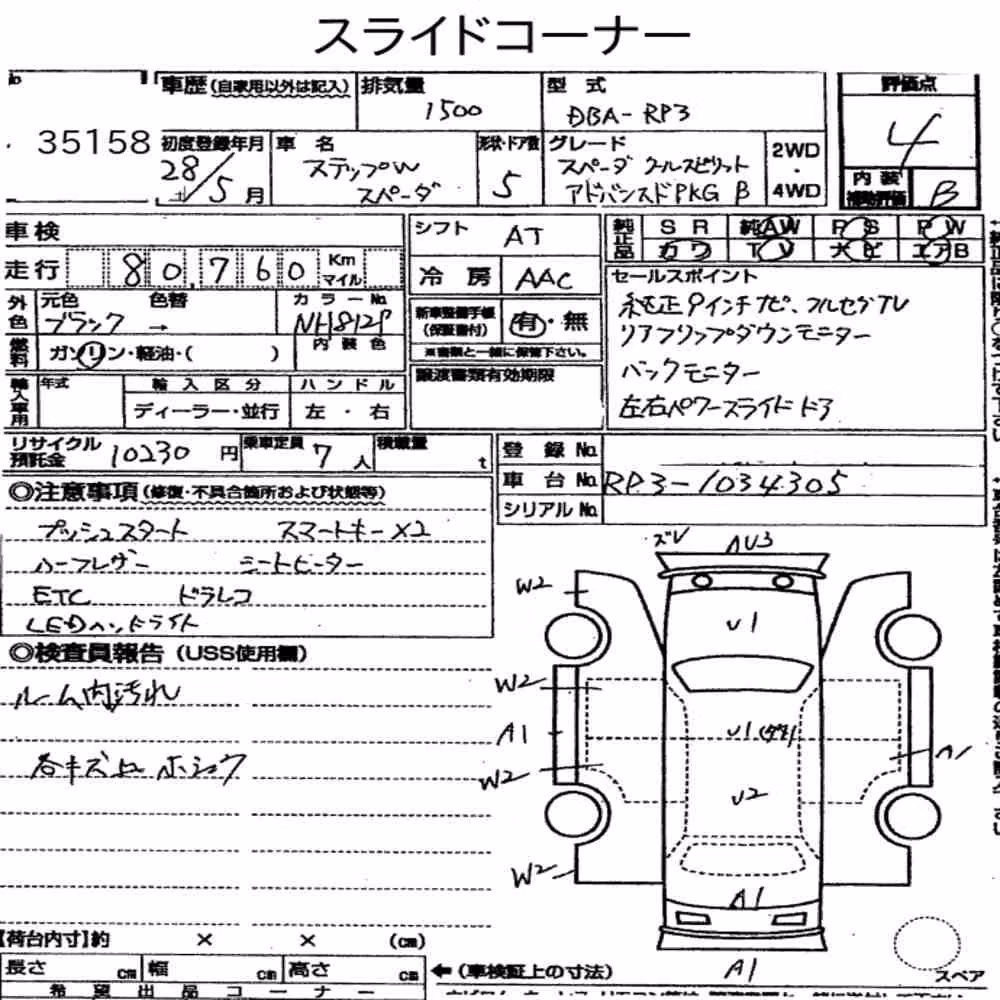 スライドコーナー
車歴 (自家用以外は記入) 排気量 型 式 評価点
1500 DBA-RP3 4
35158 初度登録年月 車 名 形状・ドア数 グレード 2WD ・ 4WD
28/5月 ステップW スペーダ 5 スペーダ クールスピリット アドバンスドPKG β
内装補助評価 B
車検 シフト AT 純正品 SR 純AW PS PW
走行 80,760 Km マイル 冷 房 AAC カワ TV ナビ エアB
外色 元色 色替 カラーNo. 新車整備手帳 (保証書付) 有・無
ブラック → NH812P ※書類と一緒に保管下さい。
燃料 ガソリン・軽油・( ) 内 装 色
輸入車用 年式 輸 入 区 分 ハ ン ド ル 譲渡書類有効期限
ディーラー・並行 左 ・ 右
セールスポイント
純正9インチナビ、フルセグTV
リアフリップダウンモニター
バックモニター
左右パワースライドドア
リサイクル預託金 10230 円 乗車定員 7 人 積載量 t
登 録 No.
車 台 No. RP3-1034305
シリアル No.
◎注意事項 (修復・不具合箇所および状態等)
プッシュスタート スマートキー×2
ハーフレザー シートヒーター
ETC ドラレコ
LEDヘッドライト
◎検査員報告 (USS使用欄)
ルーム内汚れ
各キズ凹 ホショウ
ズレ AU3
W2
U1
W2
A1 U1 A1
W2
U2
W2
A1
A1
スペア
【荷台内寸】約 × × (cm)
長さ cm 幅 cm 高さ cm ←(車検証上の寸法)
希 望 出 品 コ ー ナ ー